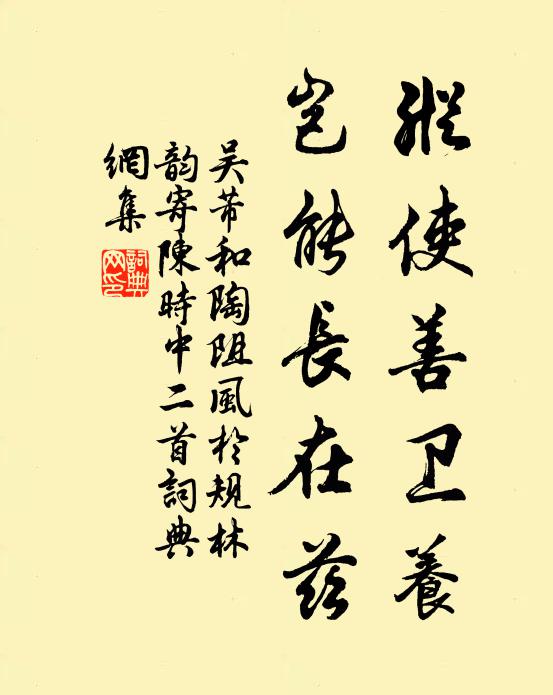 縱使善卫養
豈能長在茲
吴芾和陶阻風於規林
韵寄陳時中二首詞典
網集
詞典
网印